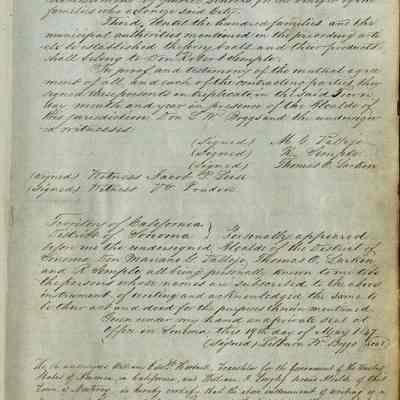 families who belong to said City.
Third, Until the hundred families and the
municipal authorities mentioned in the preceding arti-
cle be established the ferry boats and their products
shall belong to Don Robert Semple.
In proof and testimony of the mutual agree-
ment of all and each of the contracting parties, they
signed these presents in triplicate in the said Town,
day month and year in presence of the Alcalde of
this jurisdiction Don L. W. Boggs and the undersign-
ed witnesses
(Signed) M. G. Vallejo
(Signed) R. Semple
(Signed) Thomas O. Larkin
(Signed) Witness Jacob P. Leese
(Signed) Witness V. Prudon
Territory of California
District of Sonoma } Personally appeared
before me the undersigned, Alcalde of the District of
Sonoma, Don Mariano G. Vallejo, Thomas O. Larkin
and R. Semple, all being personally known to me to be
the persons whose names are subscribed to the above
instrument of writing and acknowledged the same to
be their act and deed for the purposes therein mentioned.
Given under my hand and private seal at
office in Sonoma this 19th day of May 1847.
(Signed) Lilburn W. Boggs
We the undersigned William Edwd. Hartnell, Translator for the Government of the United
States of America, in California, and William
Town of Monterey do hereby certify that the above instrument of writing is a